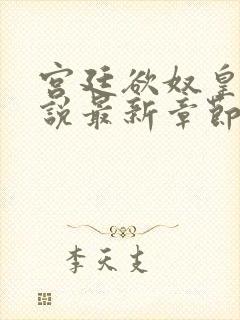 宫廷欲奴皇
説最新章節
李天支